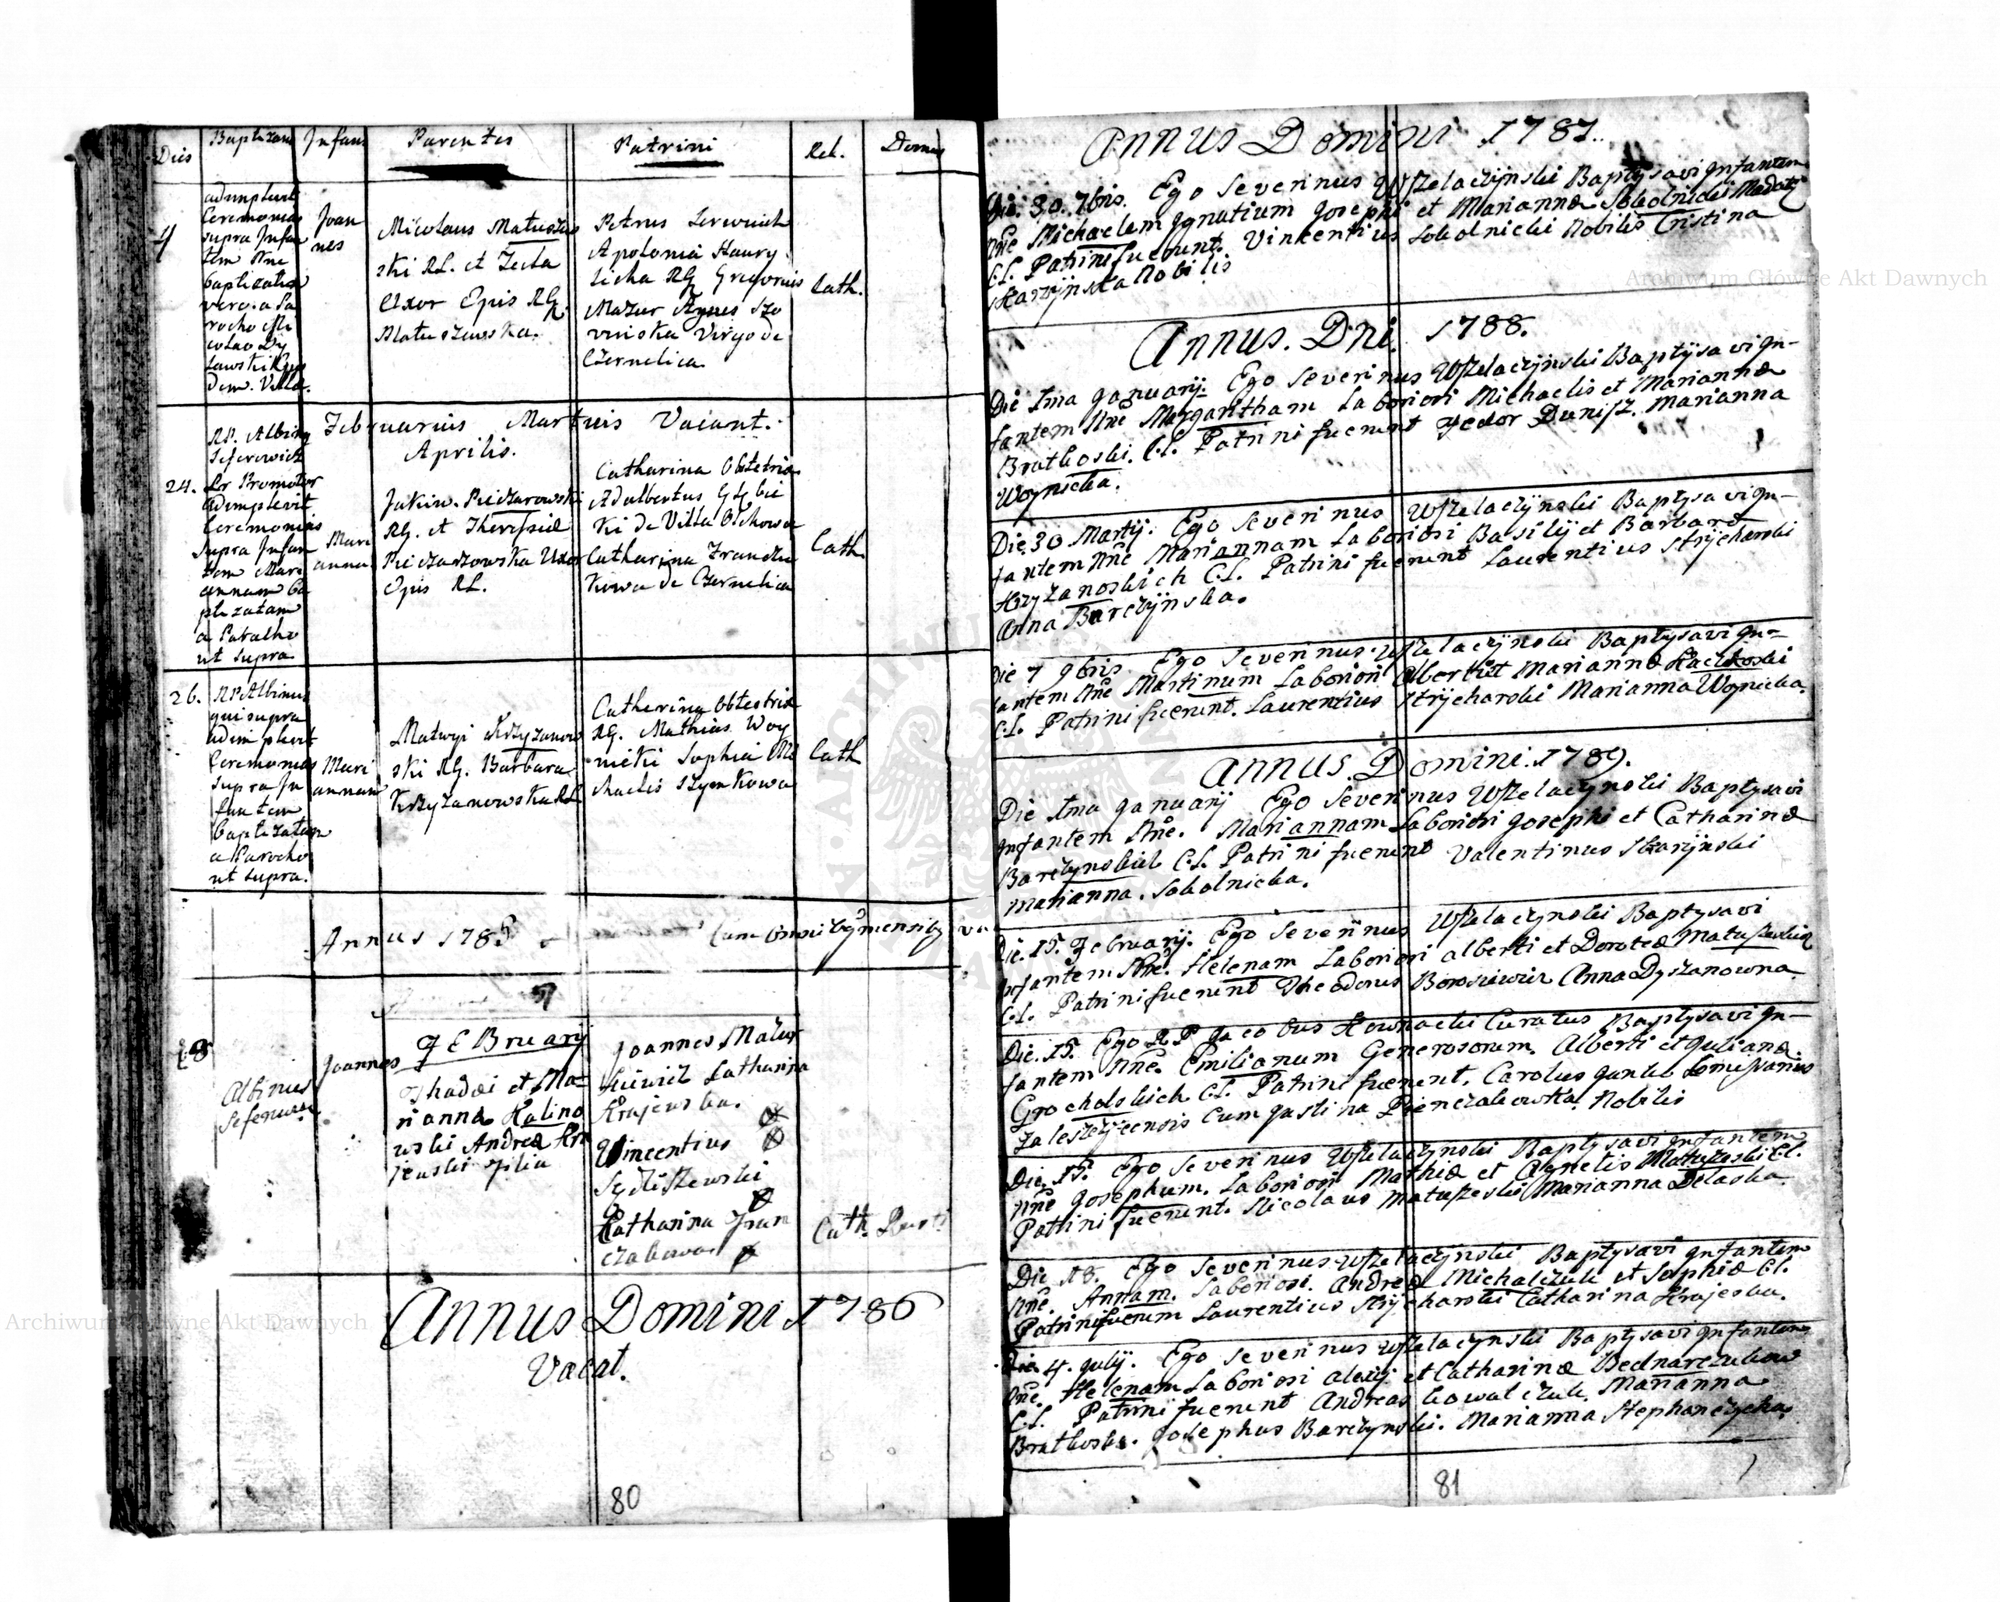 Dies Baptizans Infans Parentes Patrini Rel. Domus
4
adimplevit
Ceremonias
supra Infan
tem Nne
baptizatum
vero a Pa
rocho
dem. Villa.
Joan
nes
Nicolaus Matuszew
ski RL. et Tecla
Uxor Ejus RL
Matuszewska.
Petrus
Apolonia Haury
licha RG Gregorius
Mazur Agnes Szo
vinska Virgo de
Czernelica.
Cath.
Februarius Martius Vacant.
Aprilis.
24.
RP. Albinus
Seferowicz
Promotor
adimplevit
Ceremonias
supra Infan
tem Mari
annam ba
ptizatam
a Parocho
ut supra
Mari
anna
Pieczarowski
RG. et Theressiae
Pieczarzowska Uxor
Ejus RL.
Catharina Obstetrix
Adalbertus
ki de Villa
Catharina Francisz
kowa de Czernelica
Cath.
26.
RP Albinus
qui supra
adimplevit
Ceremonias
supra In
fantem
baptizatam
a Parocho
ut supra.
Mari
annam
Matwiji Krzyzanow
ski RG. Barbara
Krzyzanowska RL
Catharina Obstetrix
RG. Mathias Woy
nicki Sophia Mi
chaelis Szymkowa
Cath
Annus 1785
28
Februarij
Albinus
Joannes
Thadaei et Ma=
rianna Kalino
wski Andrea Kra
jewski filia
Joannes Matus
kiewicz Catharina
Krajewska.
Vincentius
Catharina Fran
czakowa
Cath. Rusti
Annus Domini 1786
Vacat.
80
Annus Domini 1787.
Die. 30. 7bris. Ego Severinus Wszelaczÿnski Baptysavi Infantem
Nne Michaelem Ignatium Josephi et Marianna Sokolnicki
C.L. Patrini fuerunt. Vincentius Sokolnicki Nobilis Cristina
Skarzÿnska Nobilis
Annus. Dni. 1788.
Die 1ma Januarij. Ego Severinus Wszelaczÿnski Baptÿsavi In-
fantem Nne Margaritham Laboriosi Michaelis et Marianna
Bratkoski. C.L. Patrini fuerunt Fedor Danisz. Marianna
Woynicka.
Die 30 Martij. Ego Severinus Wszelaczÿnski Baptysavi In-
fantem Nne Mariannam Laboriosi Basilÿ et Barbara
Krzyzanoskich C.L. Patrini fuerunt Laurentius Strÿcharski
Anna Barczÿnska.
Die 7 9bris Ego Severinus Wszelaczÿnski Baptysavi In=
fantem Nne Martinum Laboriosi Alberti et Marianna Kaczkoski
C.L. Patrini fuerunt. Laurentius Strÿcharski Marianna Woynicka.
Annus. Domini. 1789.
Die 1ma Januarij Ego Severinus Wszelaczynski Baptysavi
Infantem Nne. Mariannam Laboriosi Josephi et Catharinæ
Barczynskich C.L. Patrini fuerunt Valentinus Skarÿnski
Marianna. Sokolnicka.
Die. 15. Februarij. Ego Severinus Wszelaczynski Baptysavi
Infantem Nne. Helenam Laboriosi Alberti et Doroteæ
C.L. Patrini fuerunt Theodorus Borosiewicz Anna Dyszanowna
Die. 15. Ego R.P Jacobus Kownacki Curatus Baptysavi In-
fantem Nne. Emilianum Generosorum. Alberti et Juliana
Grocholskich C.L. Patrini fuerunt. Carolus
Zaleszczycensis cum Justina Pienczakowska. Nobilis
Die. 15. Ego Severinus Wszelaczynski Baptysavi Infantem
Nne Josephum. Laboriosi Mathiæ et Agnetis Matuszeski C.L.
Patrini fuerunt. Nicolaus Matuszeski Marianna Delaska.
Die 18. Ego Severinus Wszelaczÿnski Baptysavi Infantem
Nne. Annam. Laboriosi. Andreæ Michalczuk et Sophiæ C.L.
Patrini fuerunt Laurentius Strycharski Catharina Krajeska.
Die 4. Julij. Ego Severinus Wszelaczynski Baptysavi Infantem
Nne Helenam Laboriosi Alexij et Catharinæ Bednarczukow
C.L. Patrini fuerunt Andreas Kowalczuk Marianna
Bratkoska. Josephus Barczynski. Marianna
81
Archiwum Główne Akt Dawnych
Archiwum Główne Akt Dawnych